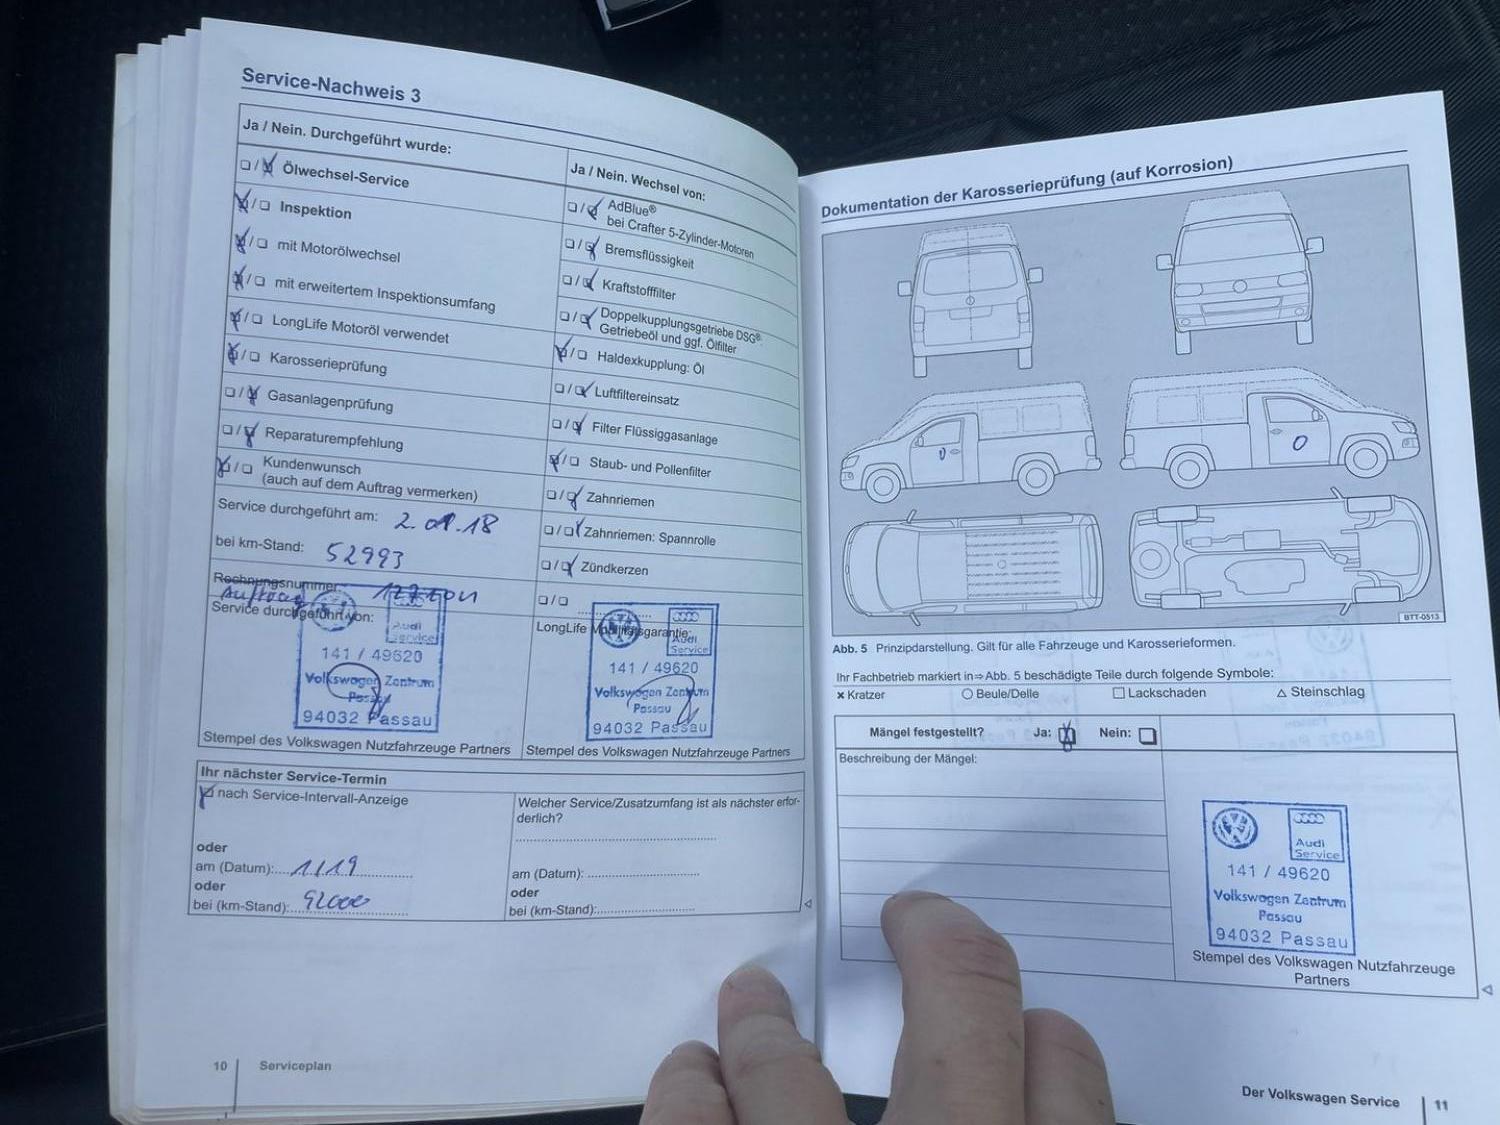 Service-Nachweis 3
Ja / Nein. Durchgeführt wurde:
Ölwechsel-Service
Inspektion
mit Motorölwechsel
mit erweitertem Inspektionsumfang
LongLife Motoröl verwendet
Karosserieprüfung
Gasanlagenprüfung
Reparaturempfehlung
Kundenwunsch
(auch auf dem Auftrag vermerken)
Service durchgeführt am:
bei km-Stand: 52993
Rechnungsnummer:
Auftrag
Service durchgeführt von:
Audi
Service
141 / 49620
Volkswagen Zentrum
Passau
94032 Passau
Stempel des Volkswagen Nutzfahrzeuge Partners
Ja / Nein. Wechsel von:
AdBlue®
bei Crafter 5-Zylinder-Motoren
Bremsflüssigkeit
Kraftstofffilter
Doppelkupplungsgetriebe DSG®:
Getriebeöl und ggf. Ölfilter
Haldexkupplung: Öl
Luftfiltereinsatz
Filter Flüssiggasanlage
Staub- und Pollenfilter
Zahnriemen
Zahnriemen: Spannrolle
Zündkerzen
LongLife Mobilitätsgarantie:
Audi
Service
141 / 49620
Volkswagen Zentrum
Passau
94032 Passau
Stempel des Volkswagen Nutzfahrzeuge Partners
Ihr nächster Service-Termin
nach Service-Intervall-Anzeige
oder
am (Datum): 1/19
oder
bei (km-Stand): 92000
Welcher Service/Zusatzumfang ist als nächster erfor-
derlich?
am (Datum):
oder
bei (km-Stand):
10 Serviceplan
Dokumentation der Karosserieprüfung (auf Korrosion)
BTT-0513
Abb. 5 Prinzipdarstellung. Gilt für alle Fahrzeuge und Karosserieformen.
Ihr Fachbetrieb markiert in⇒Abb. 5 beschädigte Teile durch folgende Symbole:
× Kratzer ○ Beule/Delle □ Lackschaden △ Steinschlag
Mängel festgestellt? Ja: Nein:
Beschreibung der Mängel:
Audi
Service
141 / 49620
Volkswagen Zentrum
Passau
94032 Passau
Stempel des Volkswagen Nutzfahrzeuge
Partners
Der Volkswagen Service 11